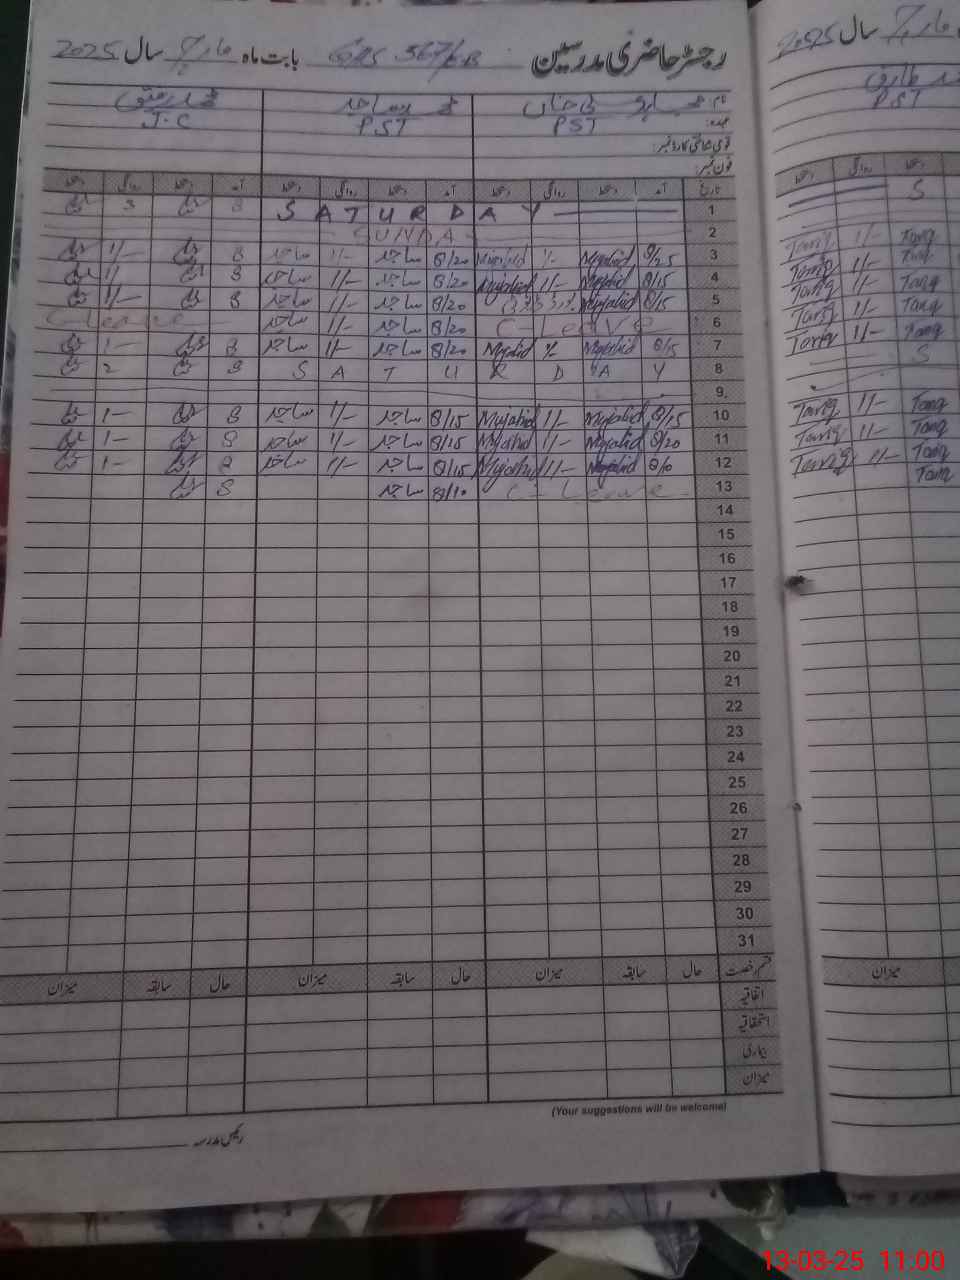 رجسٹر حاضری مدرسین GPS 567/EB بابت ماہ مارچ سال 2025
نام: محمد ساجد
عہدہ: PST PST J.C
قومی شناختی کارڈ نمبر:
فون نمبر:
تاریخ آمد دستخط روانگی دستخط آمد دستخط روانگی دستخط آمد دستخط روانگی دستخط
1 SATURDAY 8 3
2 SUNDA
3 8/25 Mujahid 1/- Mujahid 8/20 ساجد 1/- ساجد 8 1/-
4 8/15 Mujahid 1/- Mujahid 8/20 ساجد 1/- ساجد 8 1/-
5 8/15 Mujahid 8/20 ساجد 1/- ساجد 8 1/-
6 C-Leave 8/20 ساجد 1/- ساجد C-leave
7 8/15 Mujahid 1/- Mujahid 8/20 ساجد 1/- ساجد 8 1-
8 SATURDAY 8 2
9
10 8/15 Mujahid 1/- Mujahid 8/15 ساجد 1/- ساجد 8 1-
11 8/20 Mujahid 1/- Mujahid 8/15 ساجد 1/- ساجد 8 1-
12 8/10 Mujahid 1/- Mujahid 8/15 ساجد 1/- ساجد 8 1-
13 C-Leave 8/10 ساجد 8
14
15
16
17
18
19
20
21
22
23
24
25
26
27
28
29
30
31
قسم رخصت حال سابقہ میزان حال سابقہ میزان حال سابقہ میزان
اتفاقیہ
استحقاقیہ
بیماری
میزان
(Your suggestions will be welcome)
رئیس مدرسہ
مارچ سال 2025
محمد طارق
PST
دستخط روانگی دستخط
S
Tariq 1/- Tariq
Tariq 1/- Tariq
Tariq Tariq
Tariq 1/- Tariq
Tariq 1/- Tariq
S
Tariq 1/- Tariq
Tariq 1/- Tariq
Tariq 1/- Tariq
Tariq
میزان
13-03-25 11:00